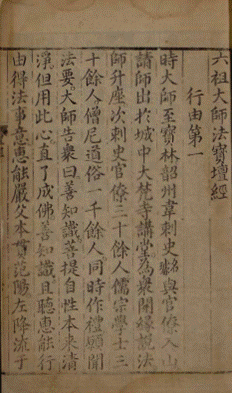 六祖大師法寶壇經
行由第一
時大師至寶林韶州韋刺史與官僚入山
請師出於城中大梵寺講堂為眾開緣說法
師升座次刺史官僚三十餘人儒宗學士三
十餘人僧尼道俗一千餘人同時作禮願聞
法要大師告眾曰善知識菩提自性本來清
淨但用此心直了成佛善知識且聽惠能行
由得法事意惠能嚴父本貫范陽左降流于